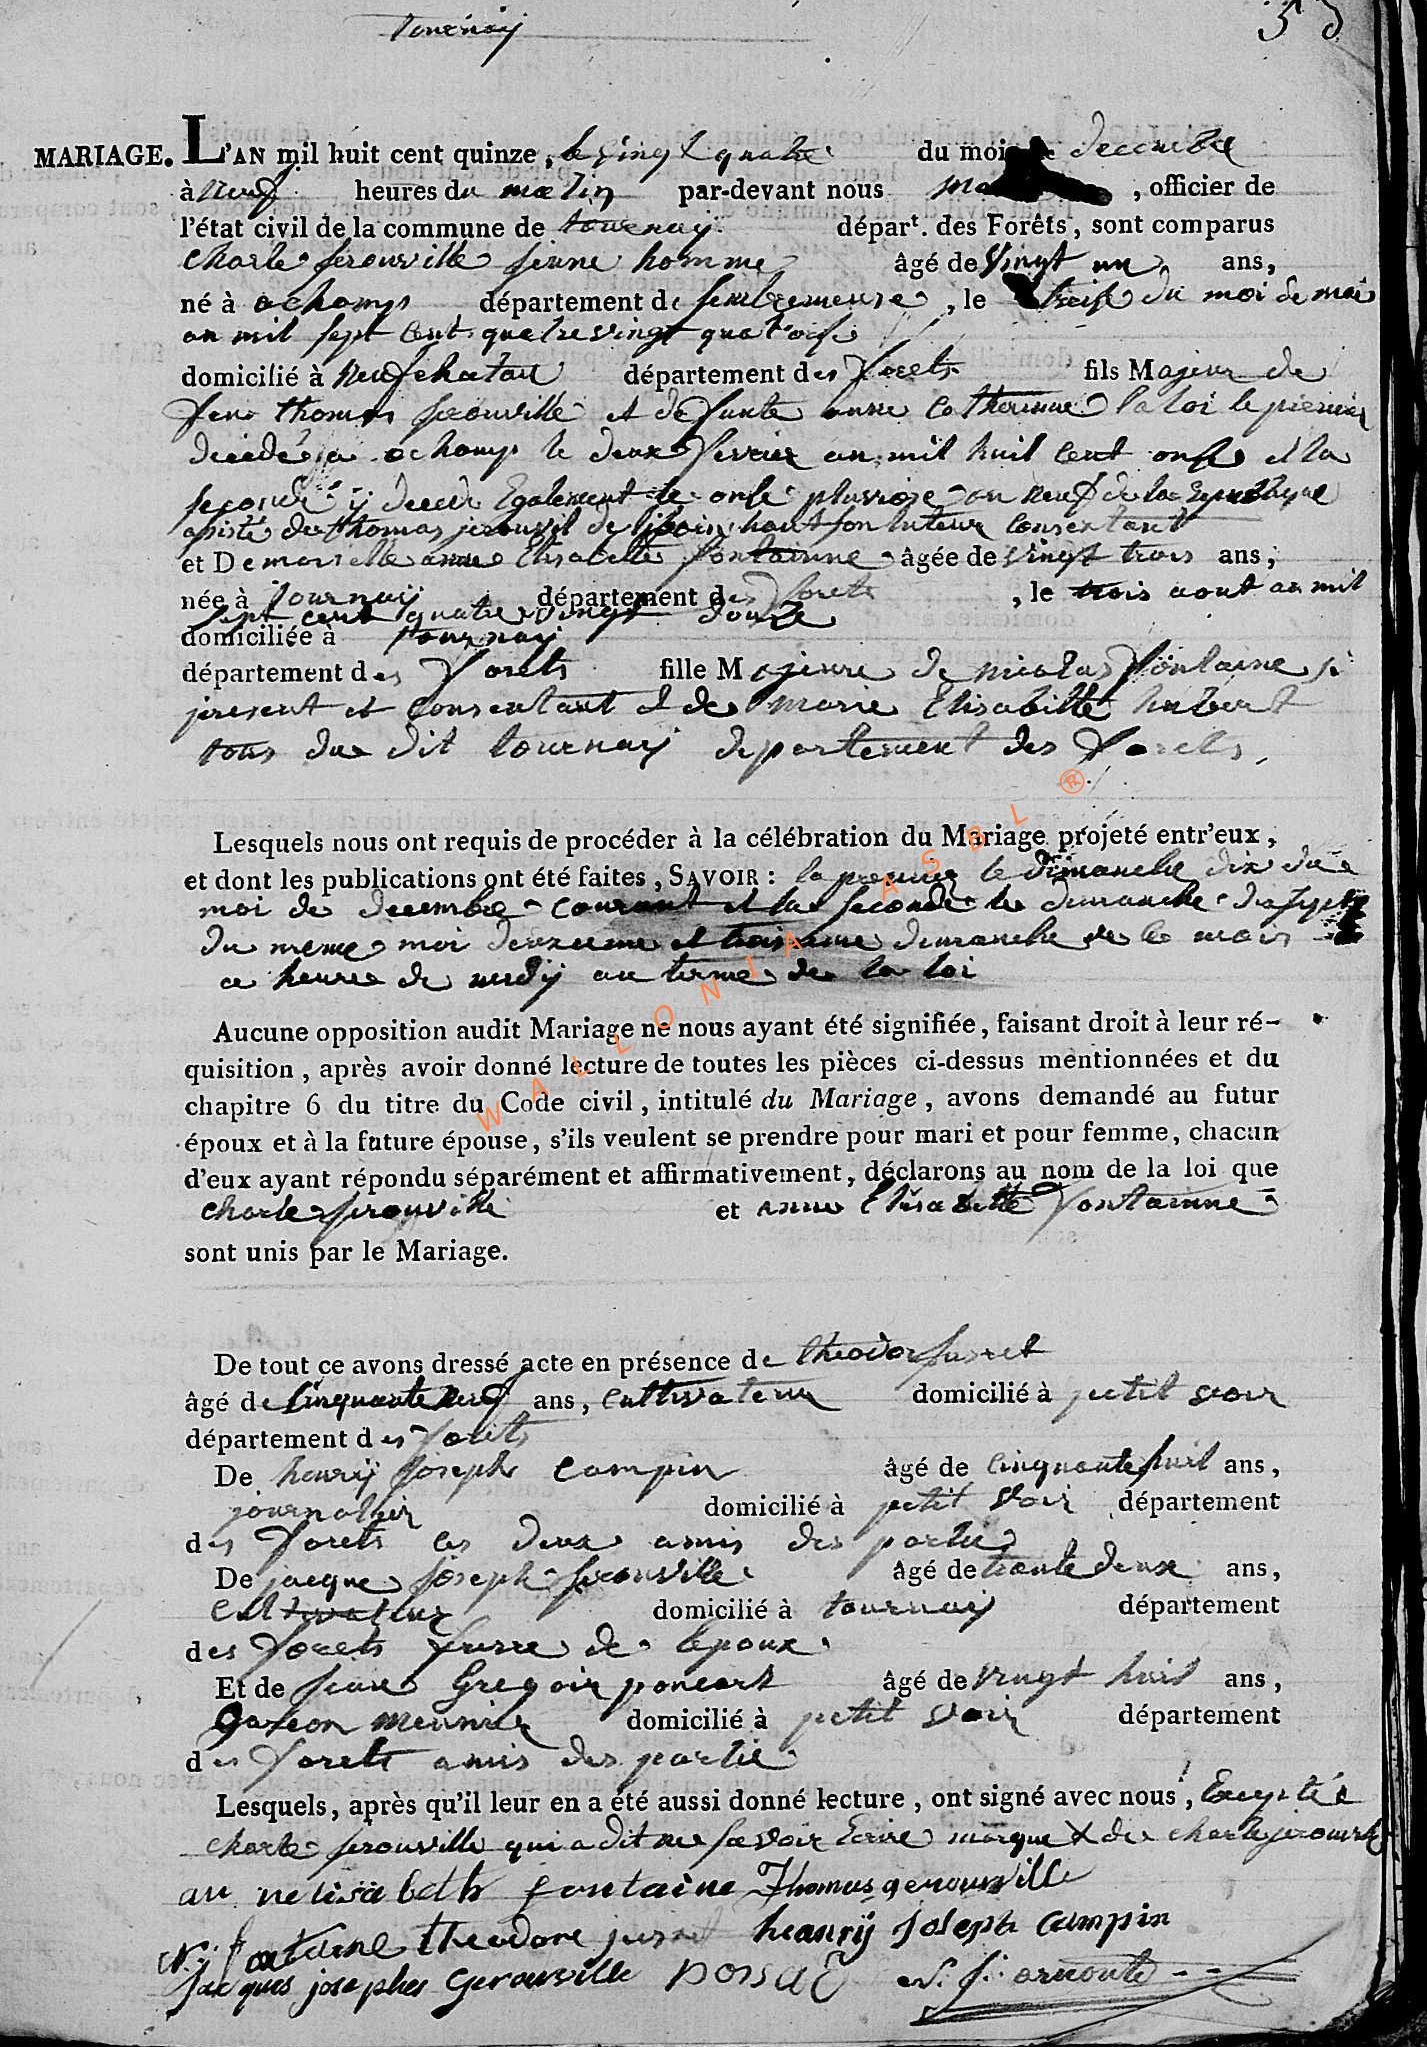 tournay
53
MARIAGE. L'AN mil huit cent quinze, le vingt quatre du mois de decembre
à neuf heures du matin par-devant nous , officier de
l'état civil de la commune de tournay départ. des Forêts, sont comparus
charle jerouville jeune homme âgé de vingt un ans,
né à ochamps département de sembremeuse, le treise du moi de mai
an mil sept cent quatrevingt quatorse
domicilié à neufchatau département des forets fils Majeur de
feu thomas jerouville et defunte anne catherinne la loi le premier
décédé a ochamp le deux fevrier an mil huit cent onse et la
seconde y decede Egalement le onse pluviose an neuf de la republique
asisté de thomas jerouvil de libain haut son tuteur consentant
et Demoiselle anne Elisabette fontainne âgée de vingt trois ans,
née à tournay département des forets , le trois aout an mil
sept cent quatre vingt douze
domiciliée à tournay
département des forets fille Majeure de nicolas fontaine si
present et consentant et de marie Elisabitte hubert
tous du dit tournay departement des forets,
Lesquels nous ont requis de procéder à la célébration du Mariage projeté entr'eux,
et dont les publications ont été faites, SAVOIR : la premier le dimanche dix du
moi de decembre courant et la seconde le dimanche dixsept
du meme moi deuxieme et troisieme dimanche de ce mois
a heure de midy au terme de la loi
Aucune opposition audit Mariage ne nous ayant été signifiée, faisant droit à leur ré-
quisition, après avoir donné lecture de toutes les pièces ci-dessus mentionnées et du
chapitre 6 du titre du Code civil, intitulé du Mariage, avons demandé au futur
époux et à la future épouse, s'ils veulent se prendre pour mari et pour femme, chacun
d'eux ayant répondu séparément et affirmativement, déclarons au nom de la loi que
charle jerouville et anne Elisabette fontainne
sont unis par le Mariage.
De tout ce avons dressé acte en présence de theodor jusret
âgé de cinquante neuf ans, cultivateur domicilié à petit voir
département des forets
De henrij joseph campin âgé de cinquante huit ans,
journallier domicilié à petit voir département
des forets ces deux amis des partie
De jacque joseph jerouville âgé de trante deux ans,
cultivateur domicilié à tournay département
des forets frerre de lepoux
Et de jean Gregoir poncart âgé de vingt huit ans,
garson meunier domicilié à petit voir département
des forets amis des partie
Lesquels, après qu'il leur en a été aussi donné lecture, ont signé avec nous, Excepté
charle jerouville qui a dit ne savoir Ecrire marque X de charle jerouville
anne lisabeth fontaine Thomas gerouville
N. j fontaine theodore jusret heanrij joseph campin
Jacques josephe Gerouville N. J. arnould
WALLONIA ASBL ®